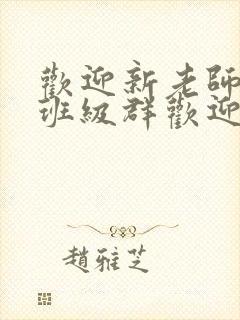 歡迎新老師
班級群歡迎
趙雅芝